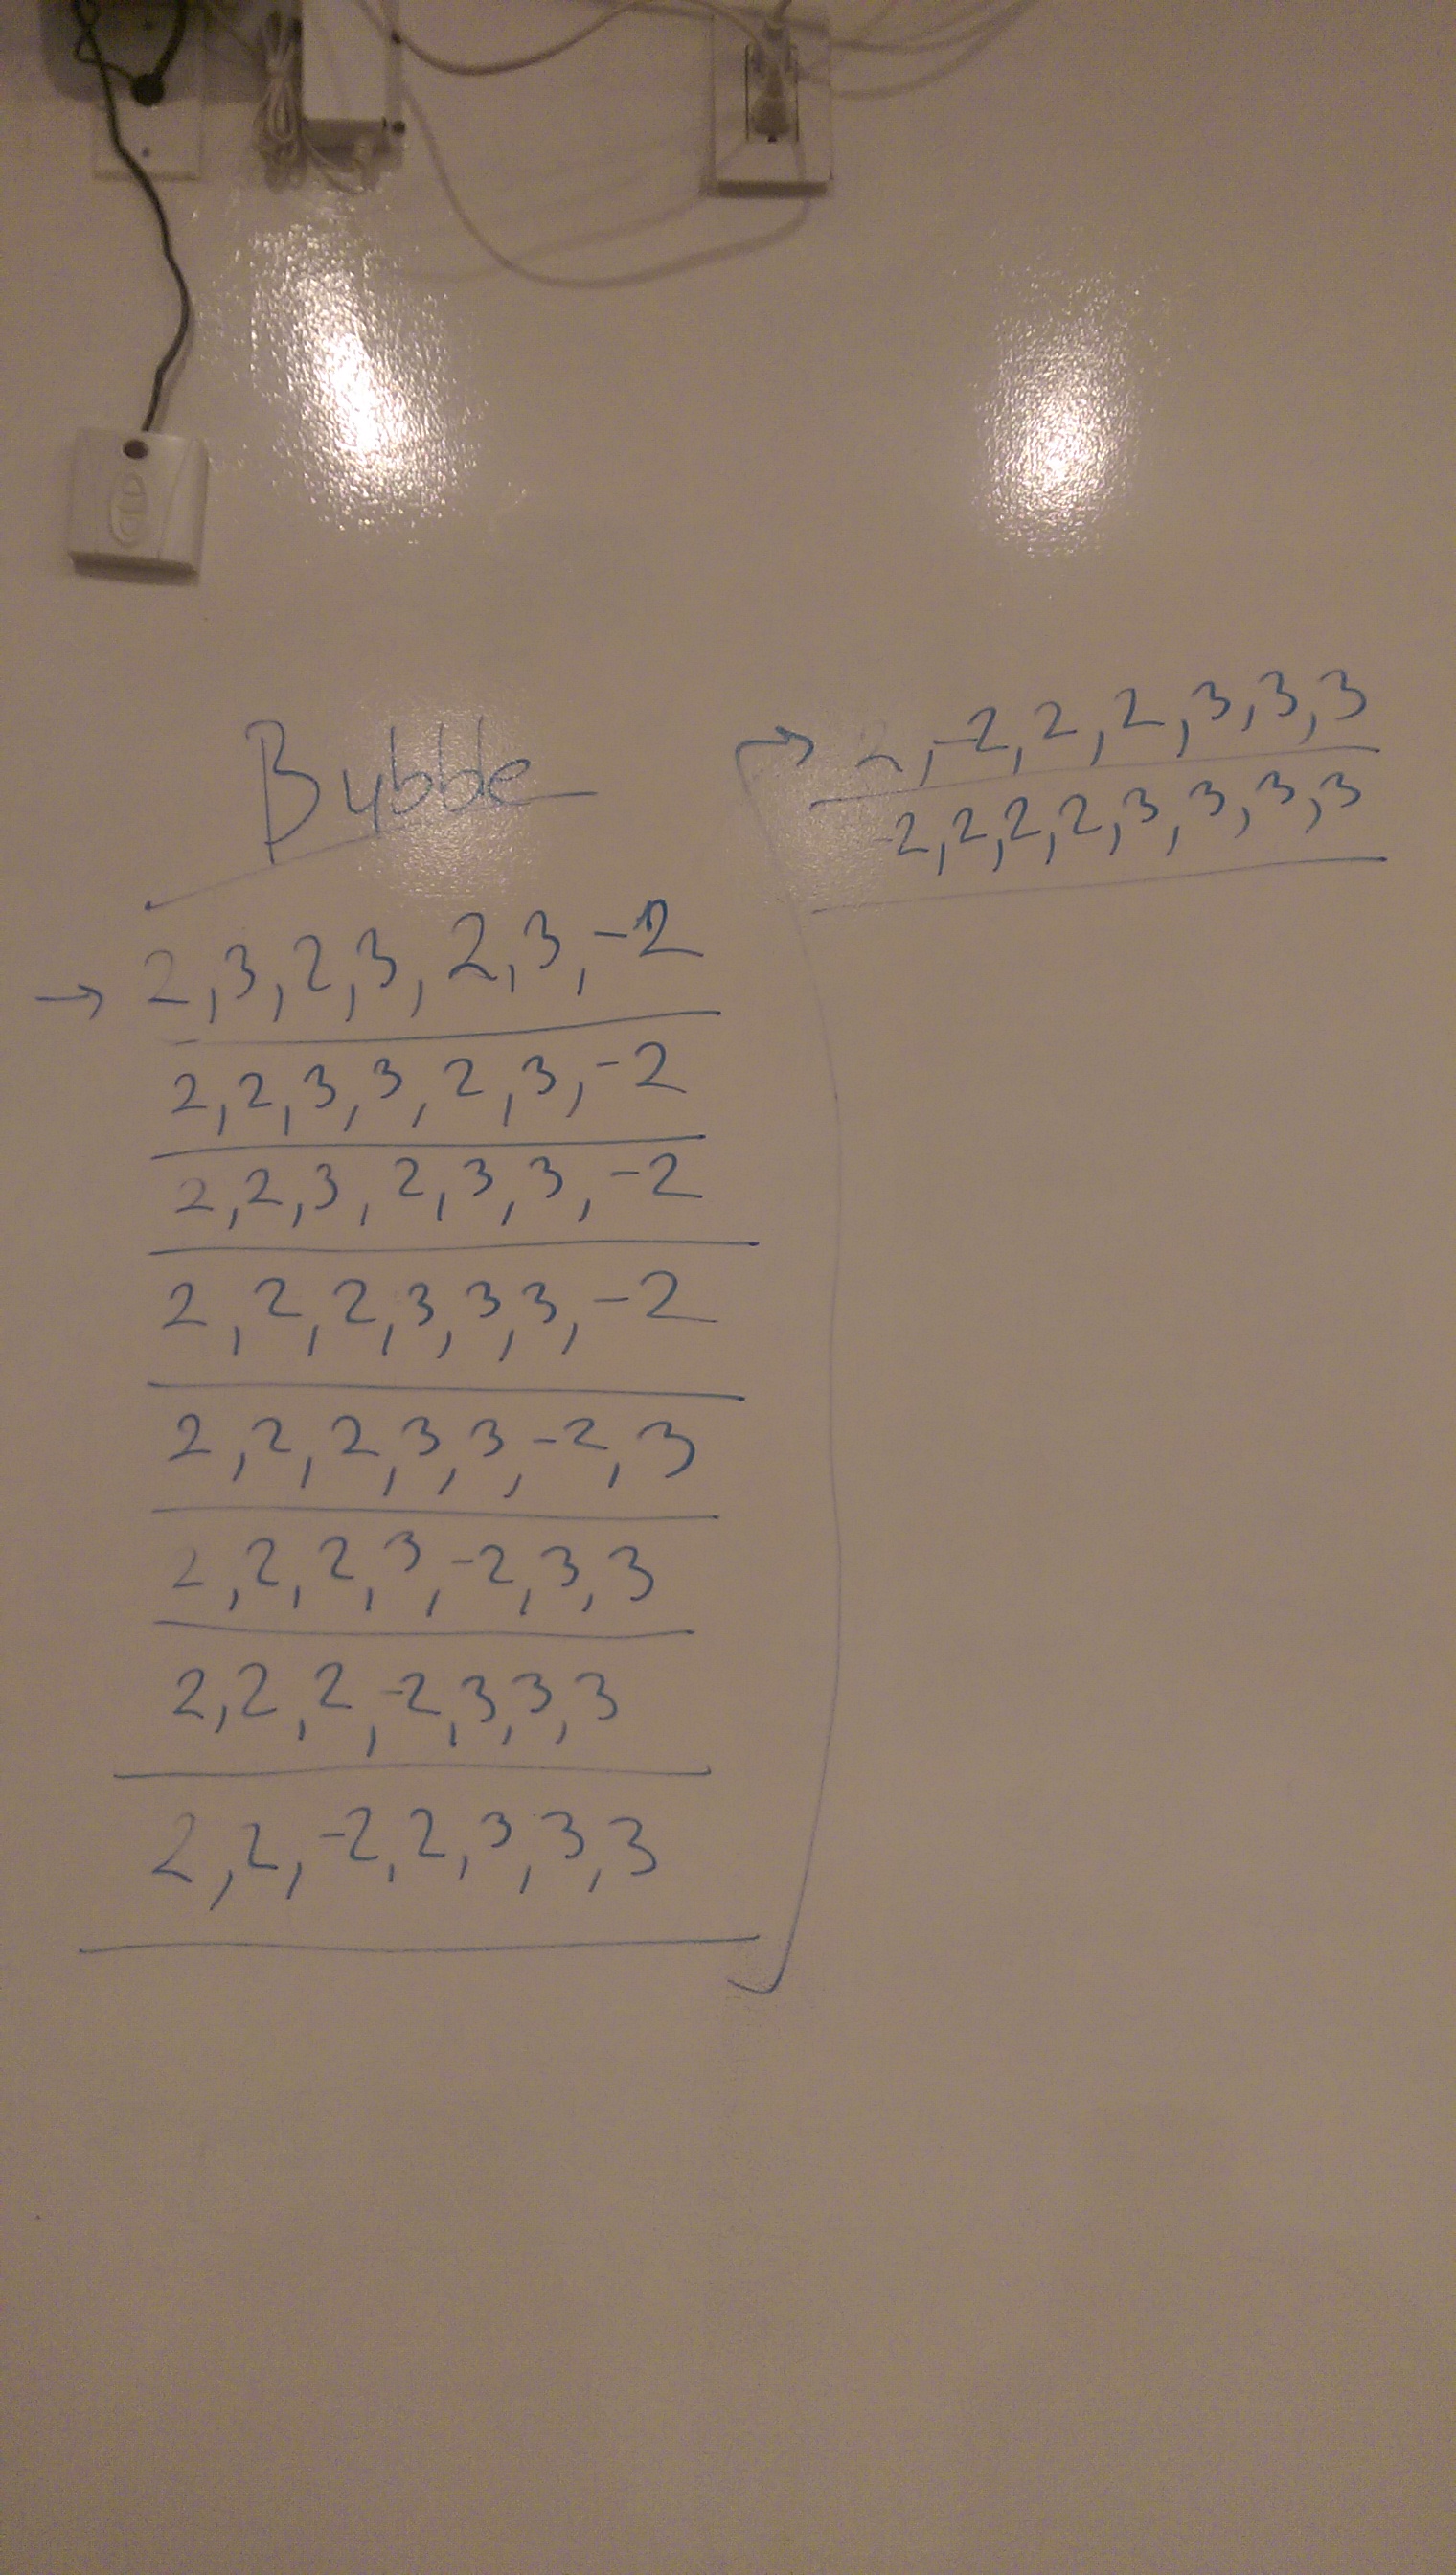 Bubble
→ 2,3,2,3,2,3,-2
2,2,3,3,2,3,-2
2,2,3,2,3,3,-2
2,2,2,3,3,3,-2
2,2,2,3,3,-2,3
2,2,2,3,-2,3,3
2,2,2,-2,3,3,3
2,2,-2,2,3,3,3
→ 2,-2,2,2,3,3,3
-2,2,2,2,3,3,3,3